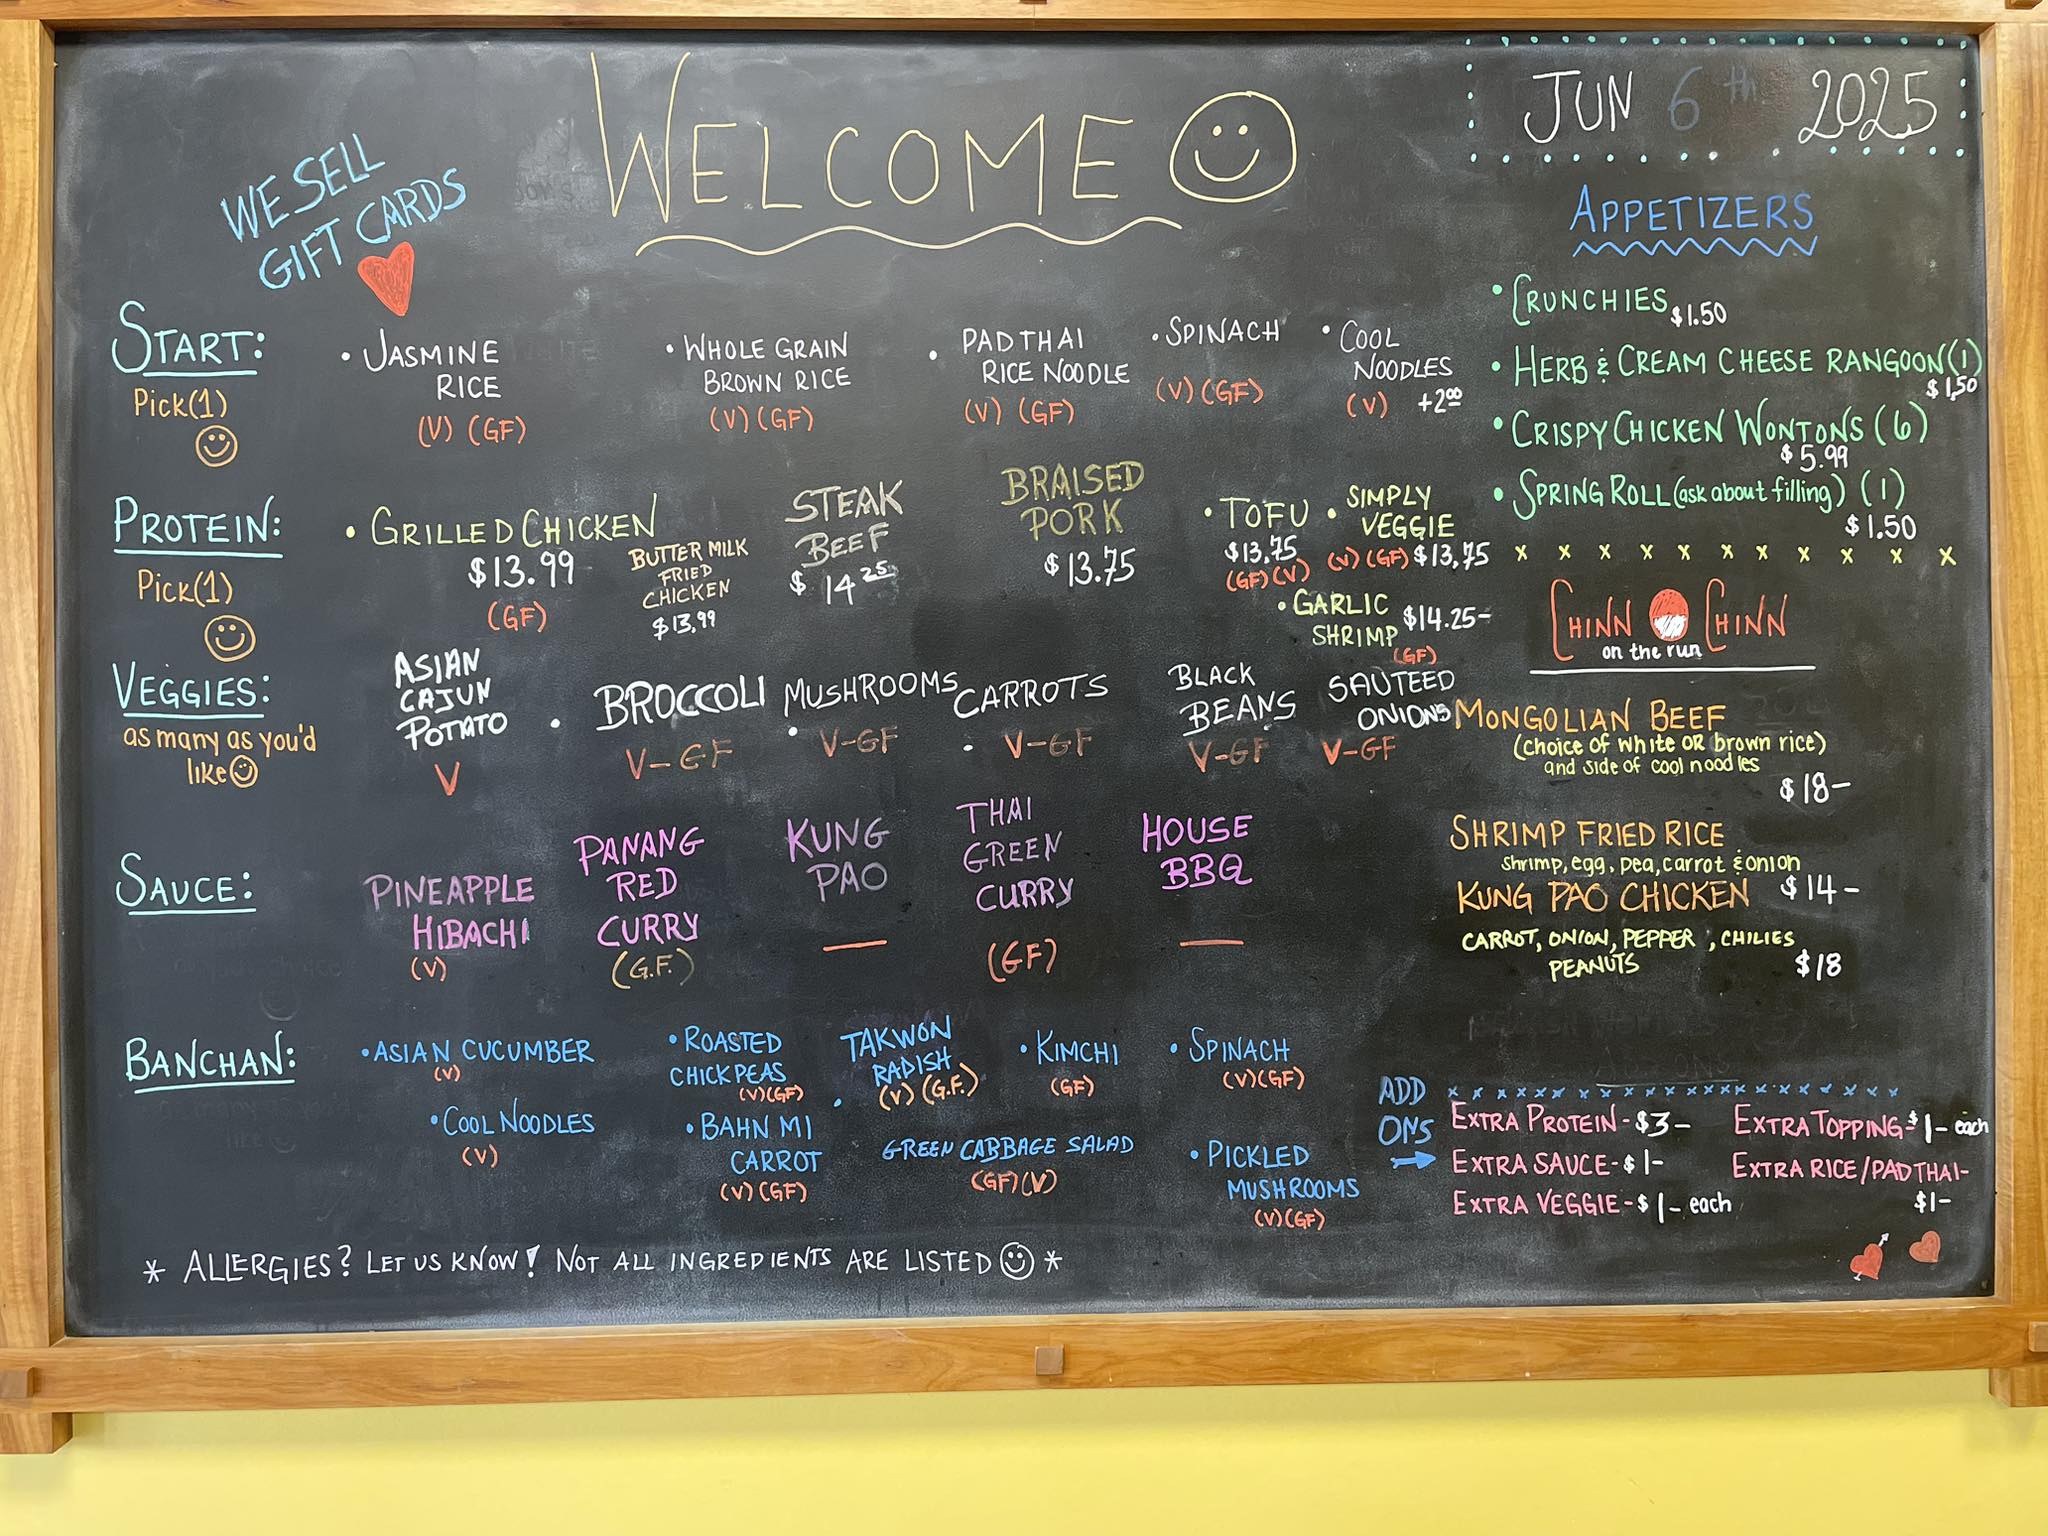 WELCOME
JUN 6th 2025
WE SELL
GIFT CARDS
START:
Pick(1)
• JASMINE
RICE
(V) (GF)
• WHOLE GRAIN
BROWN RICE
(V) (GF)
• PAD THAI
RICE NOODLE
(V) (GF)
• SPINACH
(V) (GF)
• COOL
NOODLES
(V) +2.00
PROTEIN:
Pick(1)
• GRILLED CHICKEN
$13.99
(GF)
BUTTER MILK
FRIED
CHICKEN
$13.99
STEAK
BEEF
$14.25
BRAISED
PORK
$13.75
• TOFU
$13.75
(GF) (V)
• SIMPLY
VEGGIE
(V) (GF) $13.75
• GARLIC
SHRIMP $14.25-
(GF)
VEGGIES:
as many as you'd
like
ASIAN
CAJUN
POTATO
V
• BROCCOLI
V-GF
MUSHROOMS
• V-GF
CARROTS
• V-GF
BLACK
BEANS
V-GF
SAUTEED
ONIONS
V-GF
SAUCE:
PINEAPPLE
HIBACHI
(V)
PANANG
RED
CURRY
(G.F.)
KUNG
PAO
—
THAI
GREEN
CURRY
(GF)
HOUSE
BBQ
—
BANCHAN:
• ASIAN CUCUMBER
(V)
• ROASTED
CHICKPEAS
(V)(GF)
• TAKWON
RADISH
(V) (G.F.)
• KIMCHI
(GF)
• SPINACH
(V)(GF)
• COOL NOODLES
(V)
• BAHN MI
CARROT
(V) (GF)
GREEN CABBAGE SALAD
(GF)(V)
• PICKLED
MUSHROOMS
(V)(GF)
* ALLERGIES? LET US KNOW! NOT ALL INGREDIENTS ARE LISTED *
APPETIZERS
• CRUNCHIES $1.50
• HERB & CREAM CHEESE RANGOON (1)
$1.50
• CRISPY CHICKEN WONTONS (6)
$5.99
• SPRING ROLL (ask about filling) (1)
$1.50
x x x x x x x x x x x
CHINN CHINN
on the run
MONGOLIAN BEEF
(choice of white OR brown rice)
and side of cool noodles
$18-
SHRIMP FRIED RICE
shrimp, egg, pea, carrot & onion
$14-
KUNG PAO CHICKEN
CARROT, ONION, PEPPER, CHILIES
PEANUTS
$18
ADD
ONS
EXTRA PROTEIN-$3-
EXTRA SAUCE-$1-
EXTRA VEGGIE-$1- each
EXTRA TOPPING-$1- each
EXTRA RICE/PAD THAI-
$1-